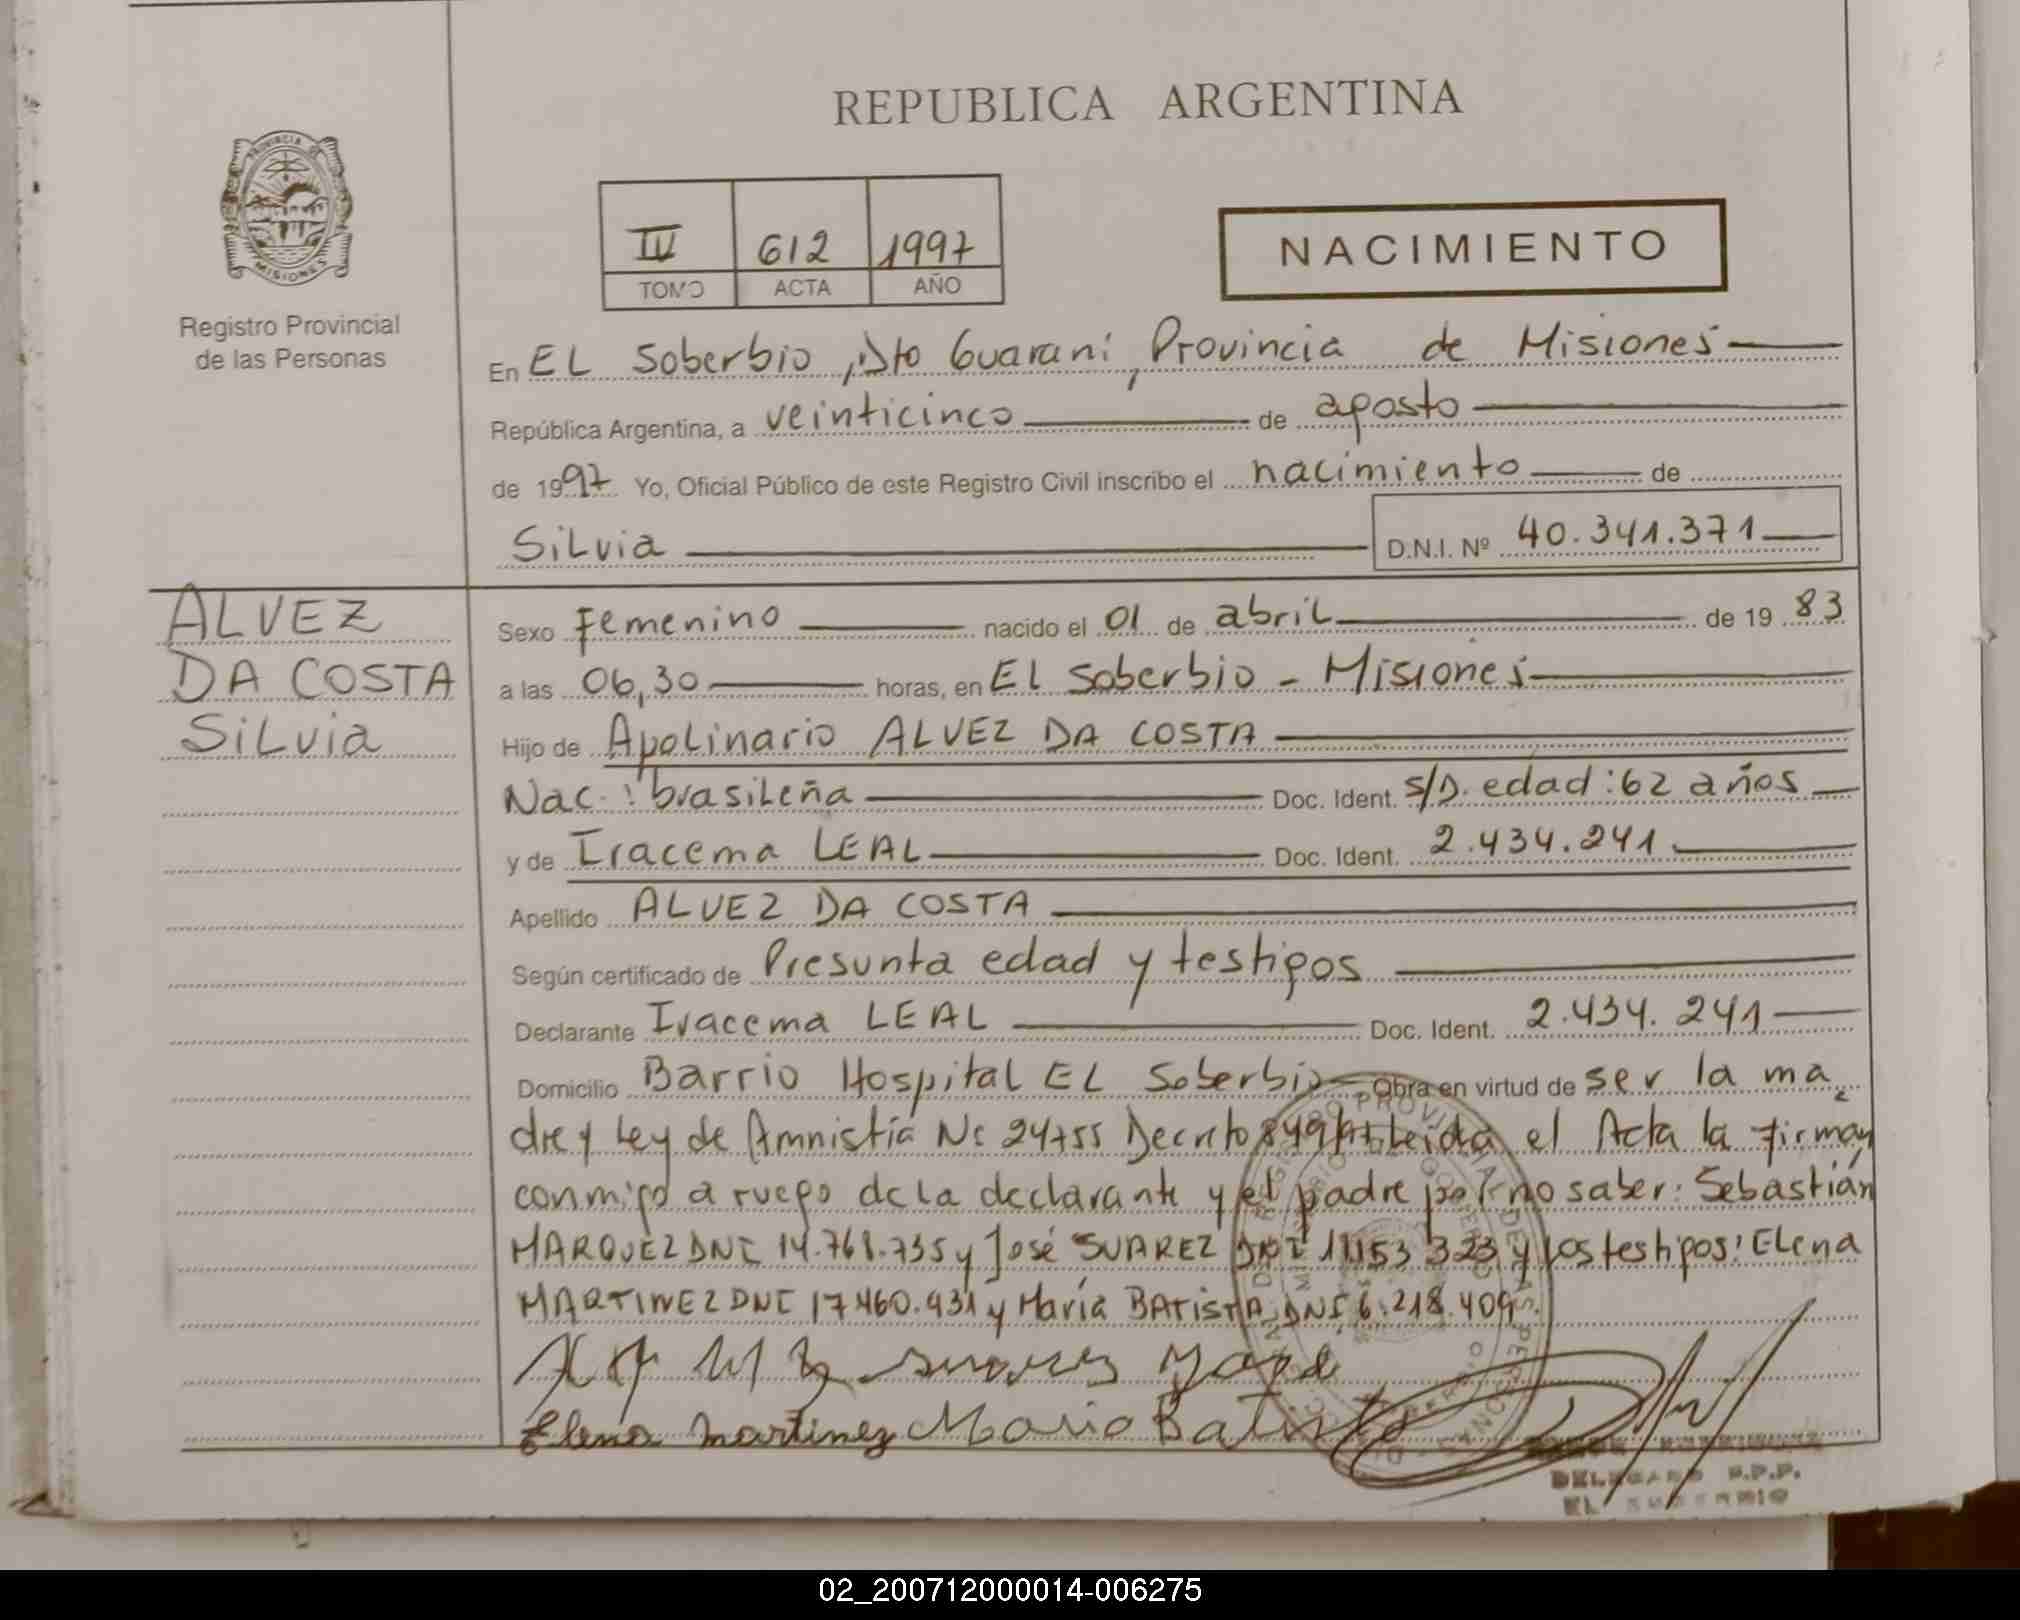 REPUBLICA ARGENTINA
PROVINCIA DE
MISIONES
Registro Provincial
de las Personas
IV 612 1997
TOMO ACTA AÑO
NACIMIENTO
En EL Soberbio, Dto Guaraní, Provincia de Misiones
República Argentina, a veinticinco de agosto
de 1997 Yo, Oficial Público de este Registro Civil inscribo el nacimiento de
Silvia D.N.I. Nº 40.341.371
ALVEZ
DA COSTA
Silvia
Sexo Femenino nacido el 01 de abril de 19 83
a las 06,30 horas, en El Soberbio - Misiones
Hijo de Apolinario ALVEZ DA COSTA
Nac.: brasileña Doc. Ident. S/D. edad: 62 años
y de Iracema LEAL Doc. Ident. 2.434.241
Apellido ALVEZ DA COSTA
Según certificado de Presunta edad y testigos
Declarante Iracema LEAL Doc. Ident. 2.434.241
Domicilio Barrio Hospital EL Soberbio Obra en virtud de ser la ma
dre y Ley de Amnistía Nº 24755 Decreto 849/97. Leída el Acta la firman
conmigo a ruego de la declarante y el padre por no saber: Sebastián
MARQUEZ DNI 14.768.735 y José SUAREZ DNI 11.153.323 y los testigos: Elena
MARTINEZ DNI 17.460.431 y María BATISTA DNI 6.218.409.
suares José
Elena Martinez Maria Batista
DELEGADO R.P.P.
EL SOBERBIO
02_200712000014-006275